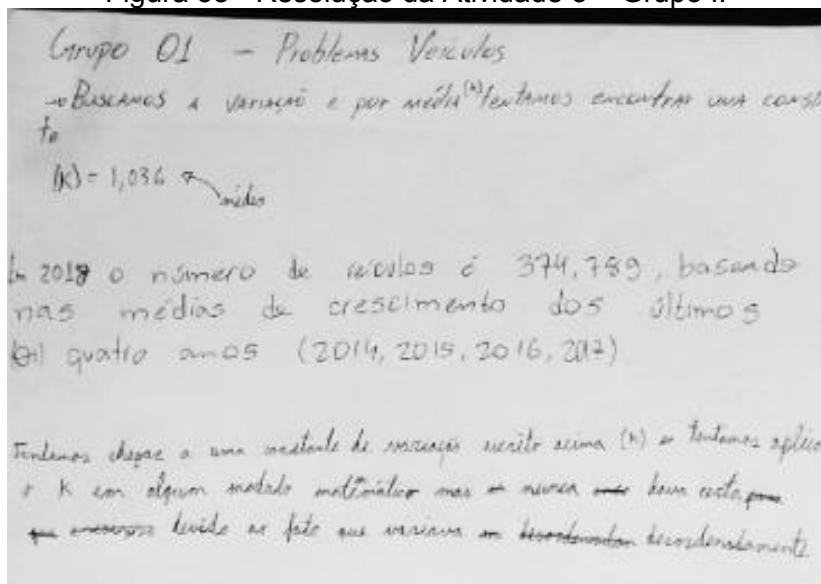 Figura 38 - Resolução da Atividade 3 - Grupo II
Grupo 01 - Problemas Veículos
→ Buscamos a variação e por média (K) tentamos encontrar uma const
te
(K) = 1,036 médes
Em 2018 o número de veículos é 374,789, basendo
nas médias de crescimento dos últimos
quatro anos (2014, 2015, 2016, 2017)
Tentamos chegar a uma constante de variação escrito acima (K) tentamos aplica
o K em algum metodo matemático mas nunca dava certo
devido ao fato que variava desordenadamente